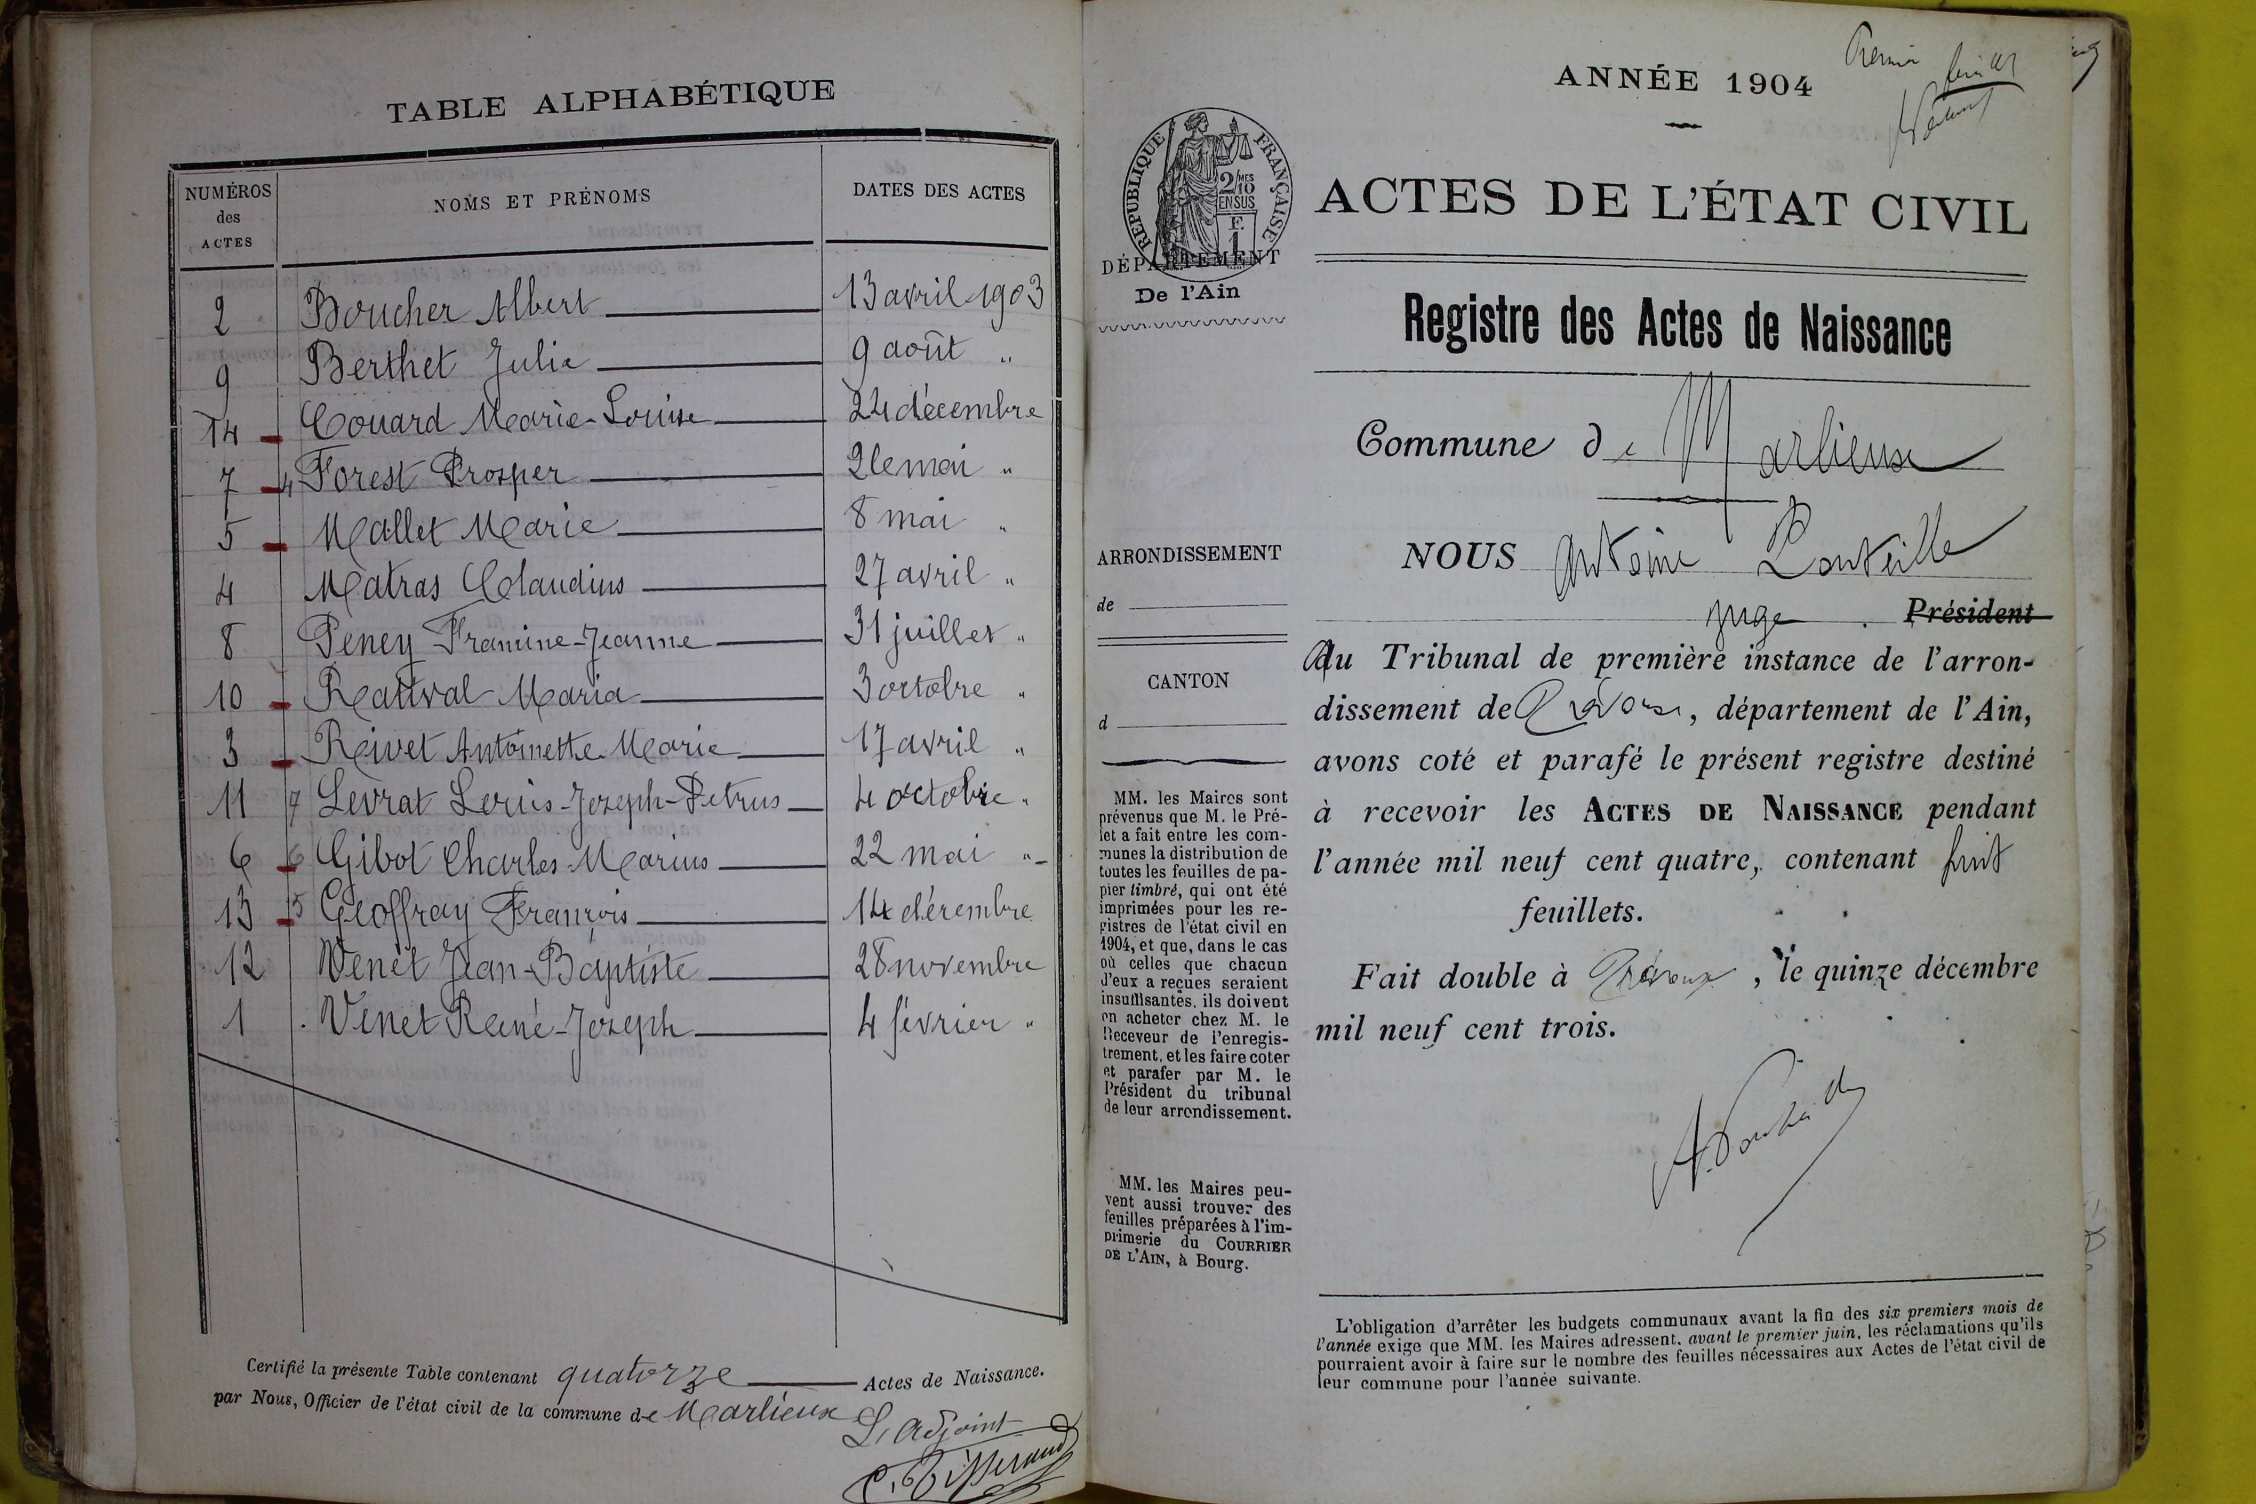 TABLE ALPHABÉTIQUE
NUMÉROS des ACTES NOMS ET PRÉNOMS DATES DES ACTES
2 Boucher Albert 13 avril 1903
9 Berthet Julie 9 août "
14 Couard Marie-Louise 24 décembre
7 4 Forest Prosper 26 mai "
5 Mallet Marie 8 mai "
4 Matras Claudius 27 avril "
8 Peney Francine-Jeanne 31 juillet "
10 Maria 3 octobre "
3 Rivet Antoinette Marie 17 avril "
11 7 Levrat Louis-Joseph-Petrus 4 octobre "
6 6 Gibot Charles Marius 22 mai "
13 5 Geoffray François 14 décembre
12 Venet Jean-Baptiste 28 novembre
1 Venet René-Joseph 4 février "
Certifié la présente Table contenant quatorze Actes de Naissance.
par Nous, Officier de l'état civil de la commune de Marlieux
L'adjoint
C. Tisserand
Premier feuillet
ANNÉE 1904
RÉPUBLIQUE FRANÇAISE
2/MES
10
EN SUS
F.
1
DÉPARTEMENT
De l'Ain
ARRONDISSEMENT
de
CANTON
d
MM. les Maires sont
prévenus que M. le Pré-
fet a fait entre les com-
munes la distribution de
toutes les feuilles de pa-
pier timbré, qui ont été
imprimées pour les re-
gistres de l'état civil en
1904, et que, dans le cas
où celles que chacun
d'eux a reçues seraient
insuffisantes, ils doivent
en acheter chez M. le
Receveur de l'enregis-
trement, et les faire coter
et parafer par M. le
Président du tribunal
de leur arrondissement.
MM. les Maires peu-
vent aussi trouver des
feuilles préparées à l'im-
primerie du COURRIER
DE L'AIN, à Bourg.
ACTES DE L'ÉTAT CIVIL
Registre des Actes de Naissance
Commune de Marlieux
NOUS Antoine Ponteille
juge Président
Au Tribunal de première instance de l'arron-
dissement de Trévoux, département de l'Ain,
avons coté et parafé le présent registre destiné
à recevoir les ACTES DE NAISSANCE pendant
l'année mil neuf cent quatre, contenant huit
feuillets.
Fait double à Trévoux, le quinze décembre
mil neuf cent trois.
L'obligation d'arrêter les budgets communaux avant la fin des six premiers mois de
l'année exige que MM. les Maires adressent, avant le premier juin, les réclamations qu'ils
pourraient avoir à faire sur le nombre des feuilles nécessaires aux Actes de l'état civil de
leur commune pour l'année suivante.